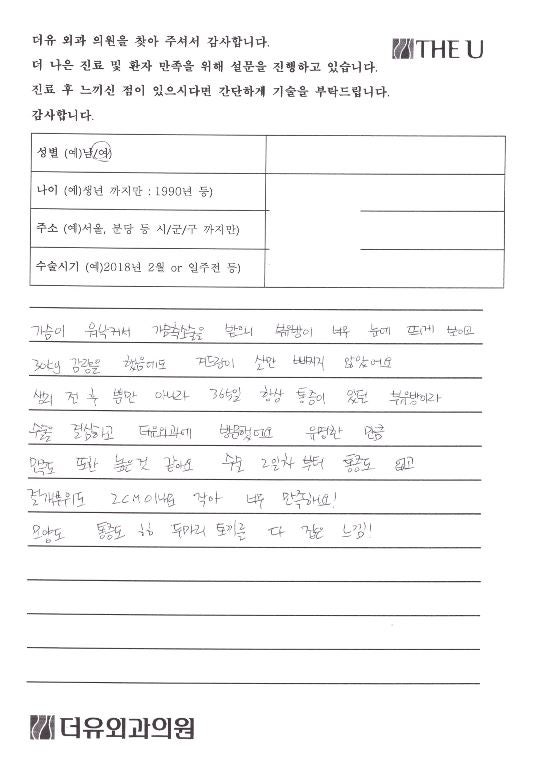 더유 외과 의원을 찾아 주셔서 감사합니다.
THE U
더 나은 진료 및 환자 만족을 위해 설문을 진행하고 있습니다.
진료 후 느끼신 점이 있으시다면 간단하게 기술을 부탁드립니다.
감사합니다.
성별 (예)남/여)
나이 (예)생년 까지만 : 1990년 등)
주소 (예)서울, 분당 등 시/군/구 까지만)
수술시기 (예)2018년 2월 or 일주전 등)
가슴이 워낙커서 가슴축소술을 받으니 부유방이 너무 눈에 띄게 보이고
30kg 감량을 했음에도 겨드랑이 살만 빠지지 않았어요
생리 전 후 뿐만 아니라 365일 항상 통증이 있던 부유방이라
수술 결심하고 더유외과에 방문했어요 유명한 만큼
만족도 또한 높은것 같아요 수술 2일차 부터 통증도 없고
절개부위도 2CM이나요 작아 너무 만족해요!
모양도 통증도 ㅎㅎ 두마리 토끼를 다 잡은 느낌!!
더유외과의원